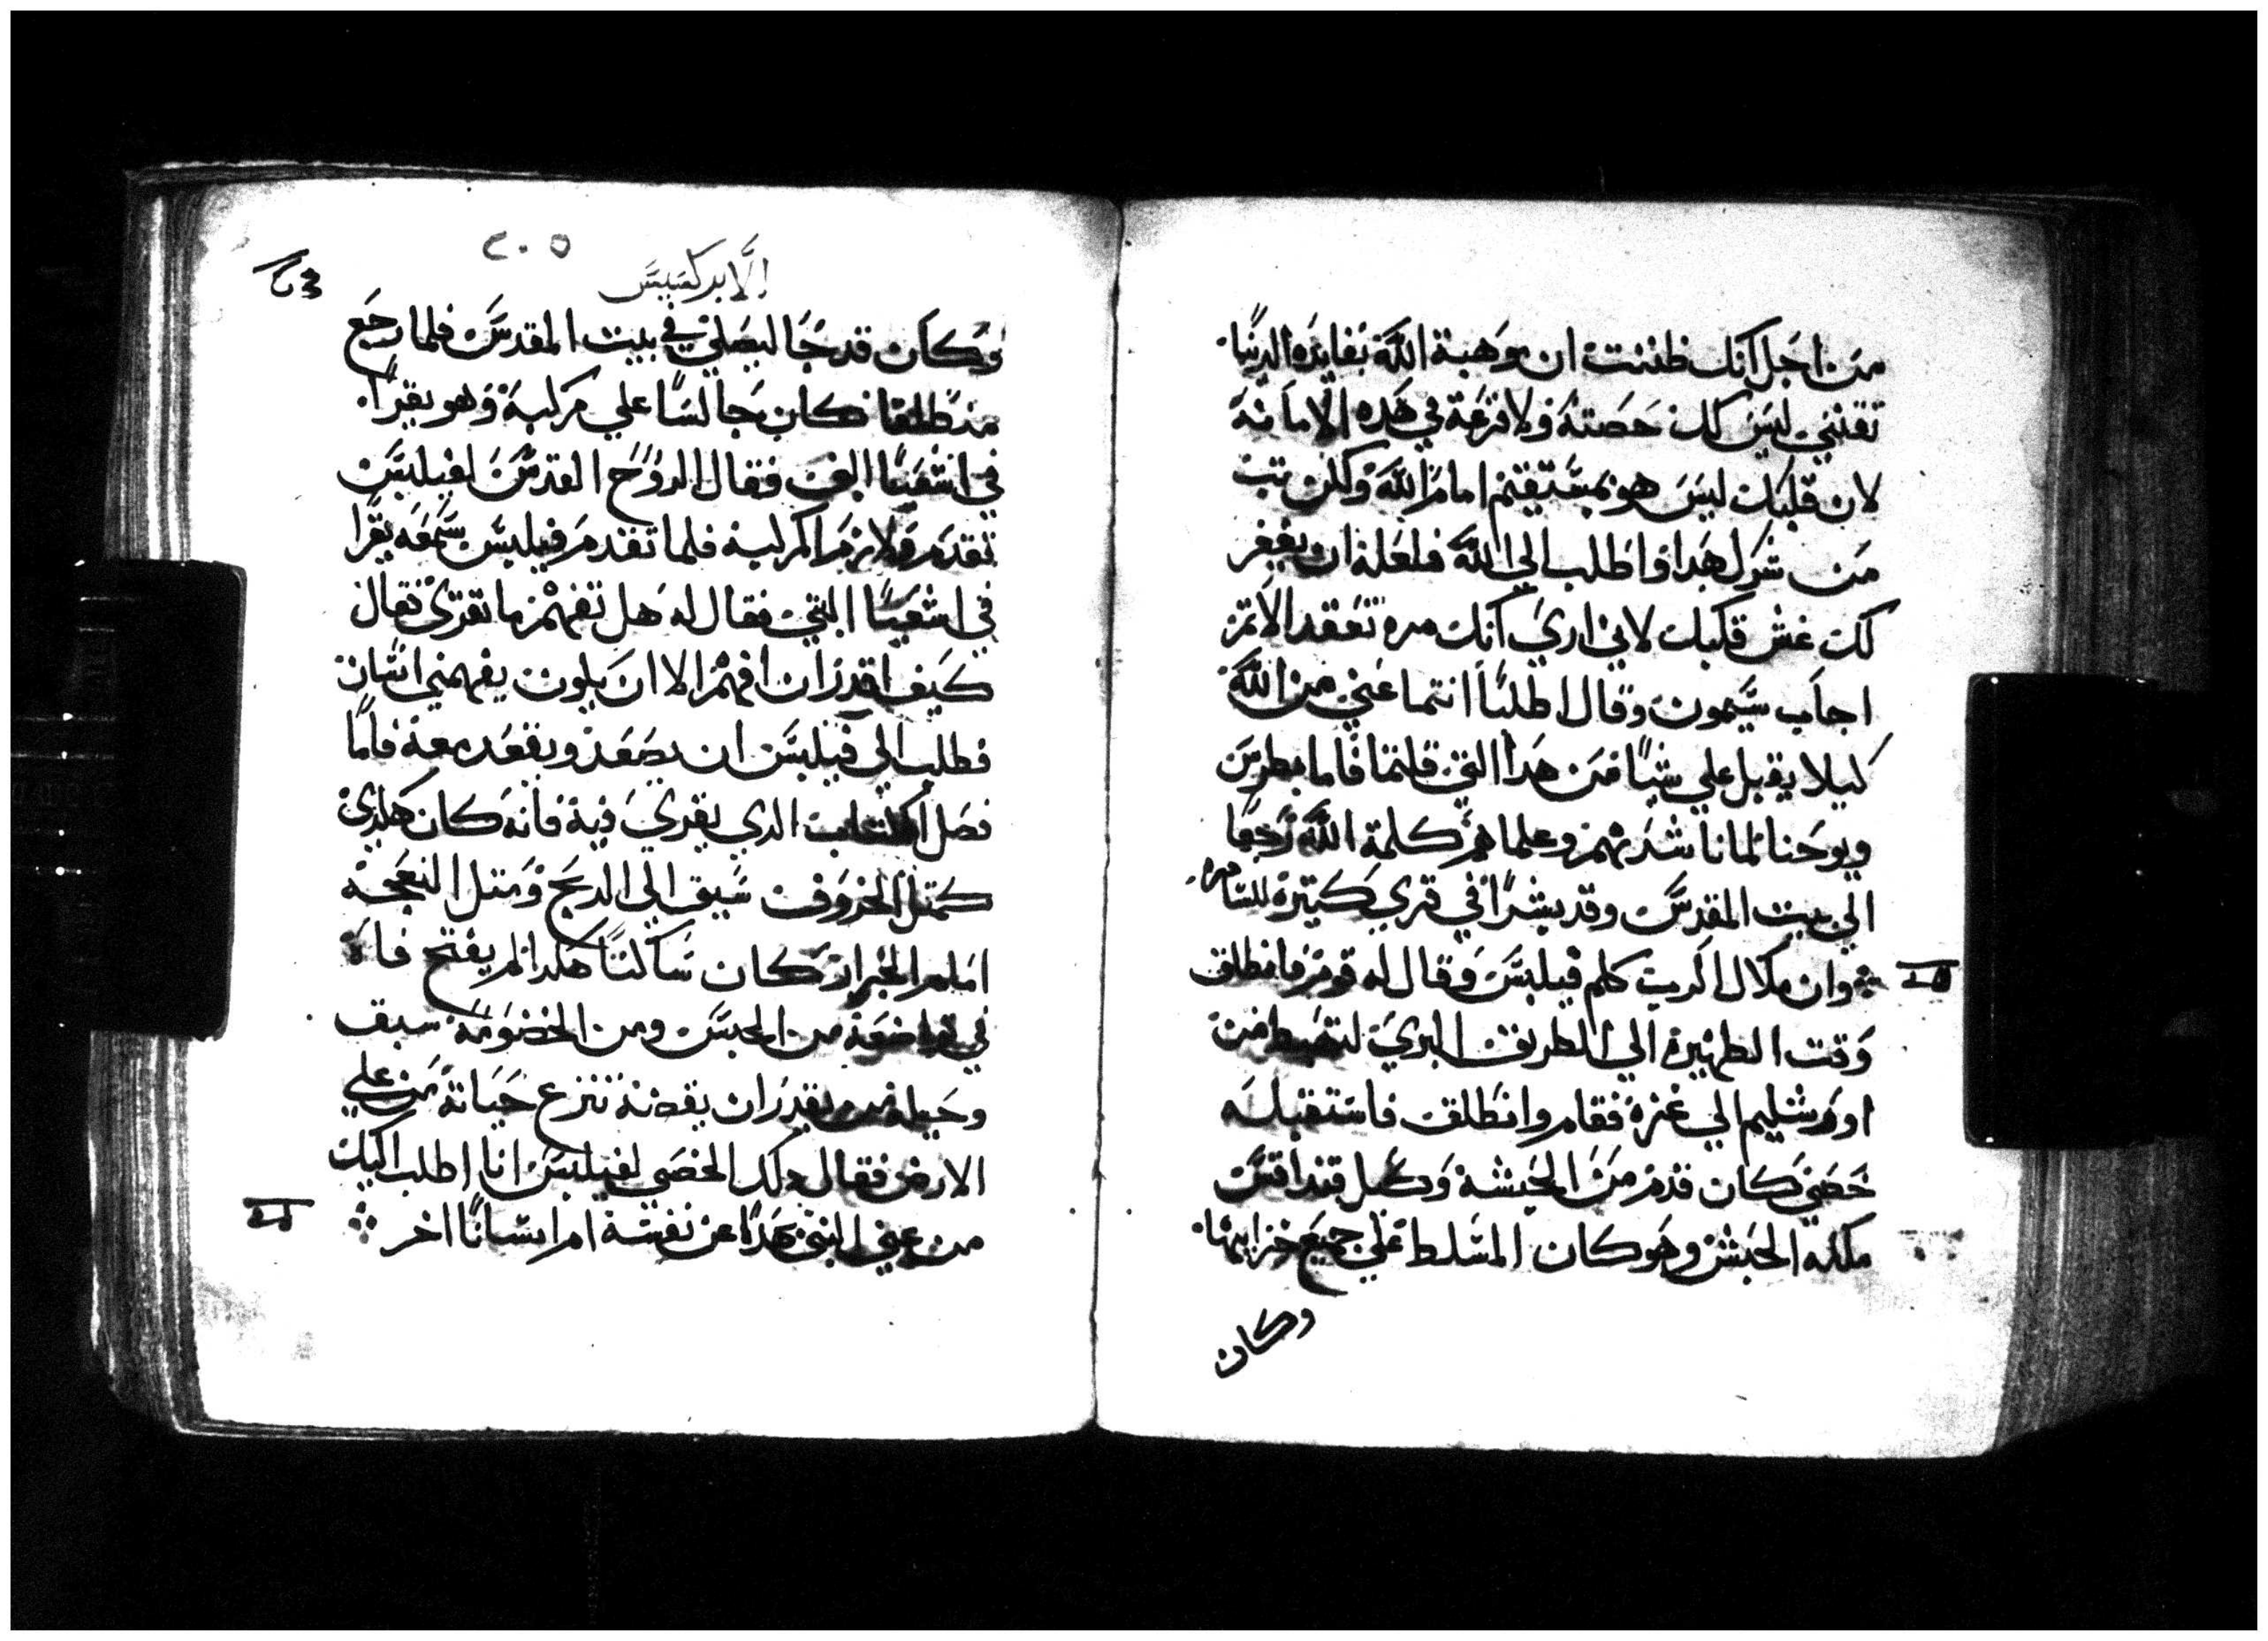 من اجل انك ظننت ان موهبة الله بفايده الدنيا
تقتني ليس لك حصته ولا قرعة في هذه الامانة
لان قلبك ليس هو بمستقيم امام الله ولكن تب
من شرك هدا واطلب الي الله فلعله ان يغفر
لك غش قلبك لاني اري انك مره تعقد الاتم
اجاب سيمون وقال اطلبا انتما عني من الله
كيلا يقبل علي شيا من هدا التي قلتما فاما بطرس
ويوحنا لما ناشدتهم وعلماهم كلمة الله رجعا
الي بيت المقدس وقد بشرا في قري كتيره للسامره
وان ملاك الرب كلم فيلبس وقال له قوم فانطلق
وقت الظهيرة الي الطريق البري لتهبط من
اورشليم الي غزة فقام وانطلق فاستقبله
خصي كان قدم من الحبشة وكيل قنداقس
ملكه الحبش وهو كان المسلط علي جميع خزاينها
وكان
٢٠٥
الابركسيس
وكان قد جا ليصلي في بيت المقدس فلما رجع
منطلقا كان جالسا علي مركبة وهو يقرا
في اشعيا النبي فقال الروح القدس لفيلبس
تقدم ولازم المركبه فلما تقدم فيلبس سمعه يقرا
في اشعيا النبي فقال له هل تفهم ما تقري فقال
كيف اقدر ان افهم الا ان يكون يفهمني انسان
فطلب الي فيلبس ان يصعد ويقعد معه فاما
فصل الكتاب الدي يقري فيه فانه كان هكدي
كمتل الخروف سيق الي الدبح ومتل النعجة
امام الجزار كان ساكتا هكدا لم يفتح فاه
في تواضعه من الحبس ومن الخصومة سبق
وجيله من يقدر ان يقصه تنزع حياتة من علي
الارض فقال دلك الخصي لفيلبس انا اطلب اليك
من عني النبي بهدا عن نفسة ام انسانا اخر